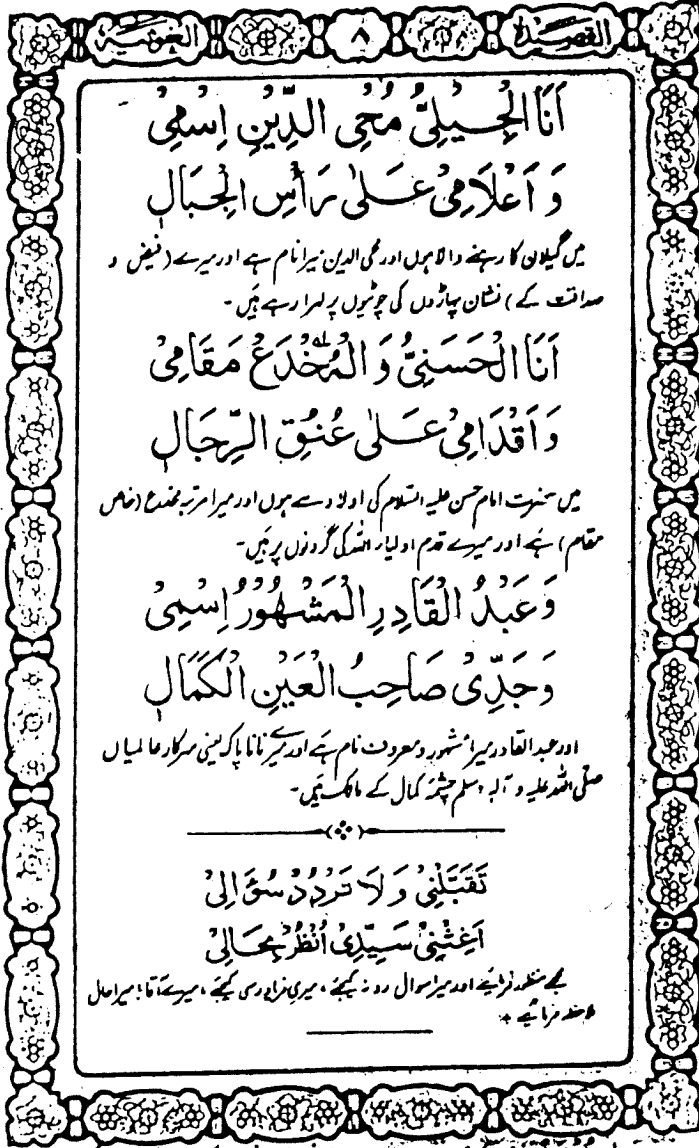 القصيدة ۸ الغوثية
اَنَا الْجِيْلِيُّ مُحْيِ الدِّيْنِ اِسْمِيْ
وَ اَعْلَامِيْ عَلٰى رَأْسِ الْجِبَالِ
میں گیلان کا رہنے والا ہوں اور محی الدین میرا نام ہے اور میرے (فیض و
صداقت کے) نشان پہاڑوں کی چوٹیوں پر لہرا رہے ہَیں۔
اَنَا الْحَسَنِيُّ وَ الْمُخْدَعْ مَقَامِيْ
وَ اَقْدَامِيْ عَلٰى عُنُقِ الرِّجَالِ
میں حضرت امام حسن علیہ السّلام کی اولاد سے ہوں اور میرا مرتبہ مخدع (خاص
مقام) ہَے اور میرے قدم اولیاء اللہ کی گردنوں پر ہَیں۔
وَ عَبْدُ الْقَادِرِ الْمَشْهُوْرُ اِسْمِيْ
وَ جَدِّيْ صَاحِبُ الْعَيْنِ الْكَمَالِ
اور عبد القادر میرا مشہور و معروف نام ہَے اور میرے نانا پاک یعنی سرکار عالمیاں
صلّی اللہ علیہ و آلہ وسلم چشمۂ کمال کے مالک ہَیں۔
تَقَبَّلْنِيْ وَ لَا تَرْدُدْ سُؤَالِيْ
اَغِثْنِيْ سَيِّدِيْ اُنْظُرْ بِحَالِيْ
مجھے منظور فرمائیے اور میرا سوال رد نہ کیجئے، میری فریاد رسی کیجئے، میرے آقا! میرا حال
ملاحظہ فرمائیے